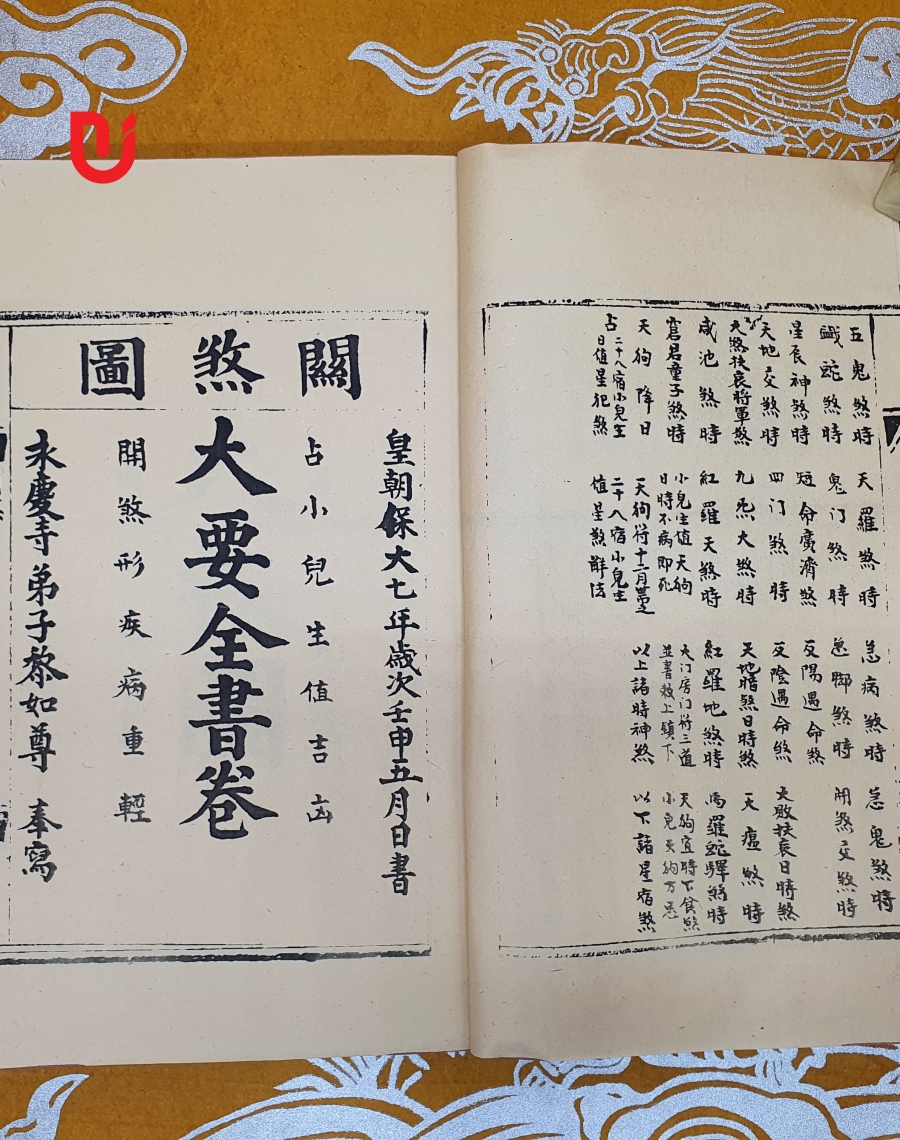 五鬼煞時 天羅煞時 急病煞時 急鬼煞時
蛇煞時 鬼门煞時 急脚煞時 用煞交煞時
星辰神煞時 短命廣濟煞 反陽遇命煞
天地交煞時 四门煞時 反陰遇命煞 大敗扶衰日時煞
大煞扶衰將軍煞 九炁大煞時 天地暗煞日時煞 天瘟煞時
咸池煞時 紅羅天煞時 紅羅地煞時 馬羅蛇驛煞時
君童子煞時 小兒生值天狗日時不病即死 大门房门符三道並書救上鎮下 天狗宜時下食煞小兒天狗方忌
天狗降日 天狗符十二月 以上諸時神煞 以下諸星宿煞
占二十八宿小兒生日值星犯煞 二十八宿小兒生值星煞解法
關煞圖
皇朝保大七年歲次壬申五月日書
占小兒生值吉凶
大要全書卷
開煞形疾病重輕
永慶寺弟子黎如尊 奉寫